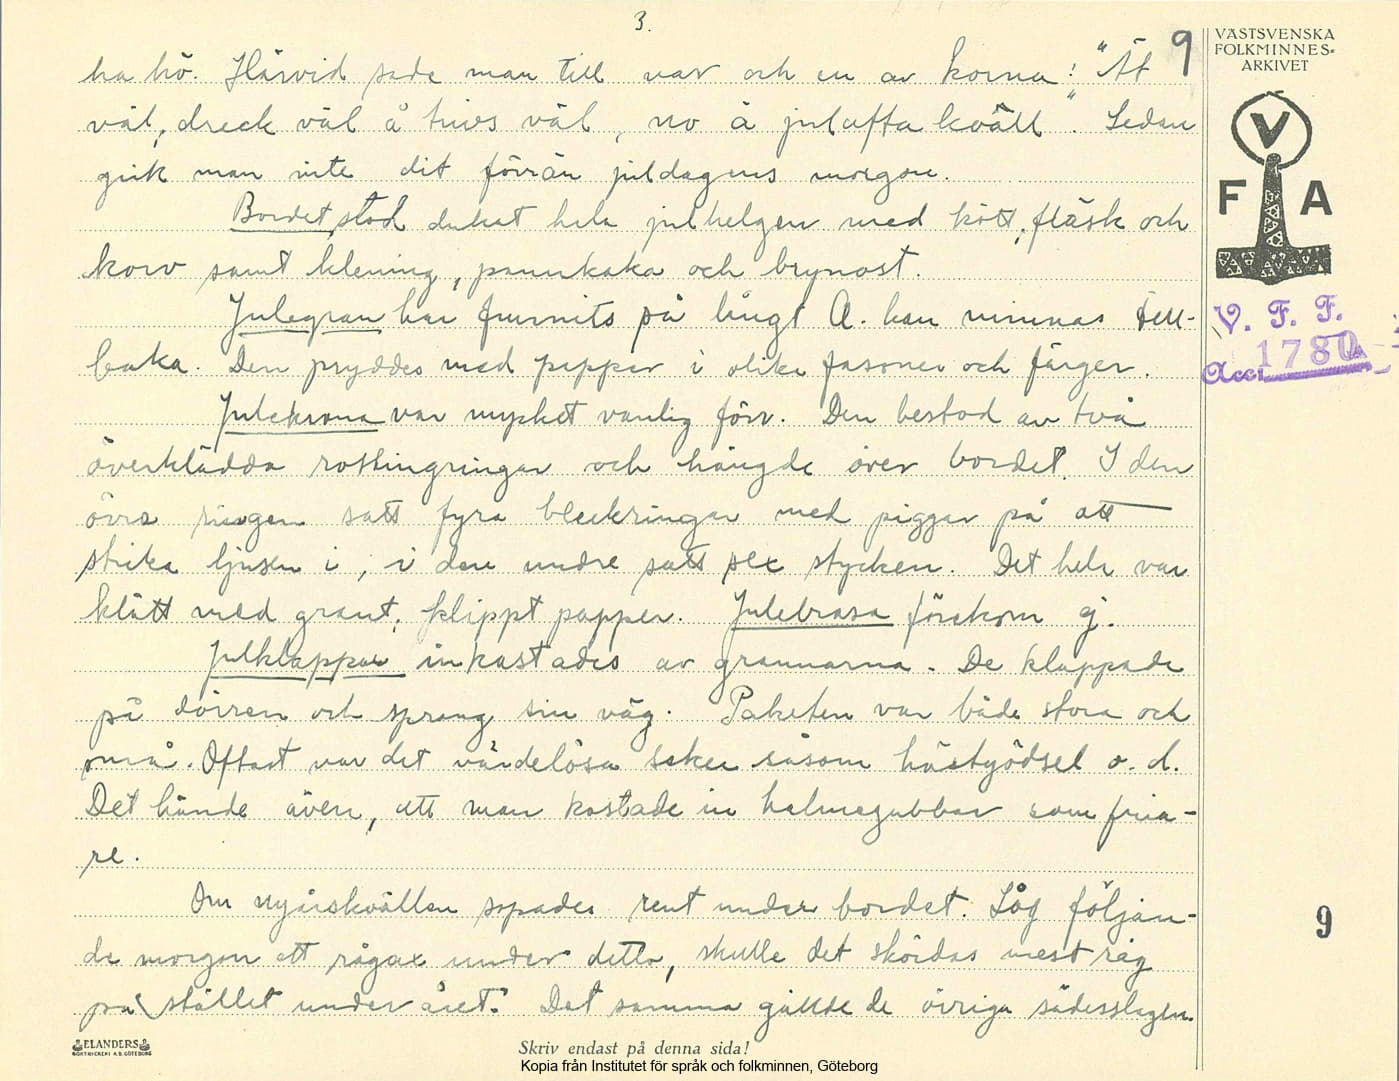 3.
9
VÄSTSVENSKA
FOLKMINNES=
ARKIVET
V
F A
V. F. F.
Acc. 1780
ha hö. Härvid sade man till var och en av korna: "Ät
väl, dreck väl å trivs väl, no ä julafta kväll". Sedan
gick man inte dit förrän juldagens morgon.
Bordet stod dukat hela julhelgen med kött, fläsk och
korv samt klening, pannkaka och brynost.
Julegran har funnits på långt A. kan minnas till-
baka. Den pryddes med papper i olika fasoner och färger.
Julekrona var mycket vanlig förr. Den bestod av två
överklädda rottingringar och hängde över bordet. I den
övre ringen satt fyra bleckringar med piggar på att
sticka ljusen i, i den undre satt sex stycken. Det hela var
klätt med grant, klippt papper. Julebrasa förekom ej.
Julklappar inkastades av grannarna. De klappade
på dörren och sprang sin väg. Paketen var både stora och
små. Oftast var det värdelösa saker såsom hästgödsel o. d.
Det hände även, att man kastade in halmagubbar som fria-
re.
Om nyårskvällen sopades rent under bordet. Låg följan-
de morgon ett rågax under detta, skulle det skördas mest råg
på stället under året. Det samma gällde de övriga sädesslagen.
9
ELANDERS
BOKTRYCKERI A.B. GÖTEBORG
Skriv endast på denna sida!
Kopia från Institutet för språk och folkminnen, Göteborg